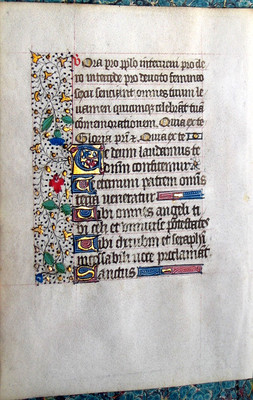 Ora pro pplo interveni pro cle
ro intercede pro devoto femineo
sexu sentiant omnes tuum le
vamen quicumque celebrant tuā
comemorationem. Quia ex te
Gloria pri Quia ex te
Te deum laudamus te
dominum confitemur
Te eternum patrem omnis
terra veneratur
Tibi omnes angeli ti
bi celi et universe potestates
Tibi cherubim et seraphī
incessabili voce proclamant
Sanctus